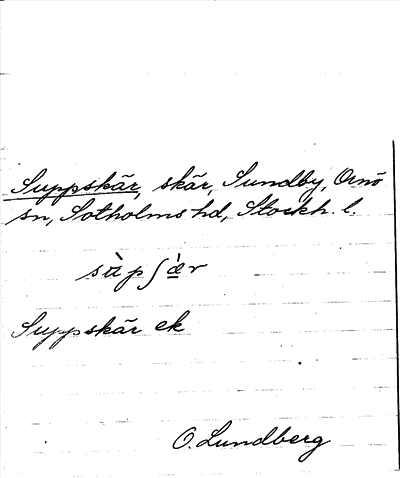 Suppskär, skär, Sundby, Ornö
sn, Sotholms hd, Stockh. l.
Suppskär ek
O. Lundberg